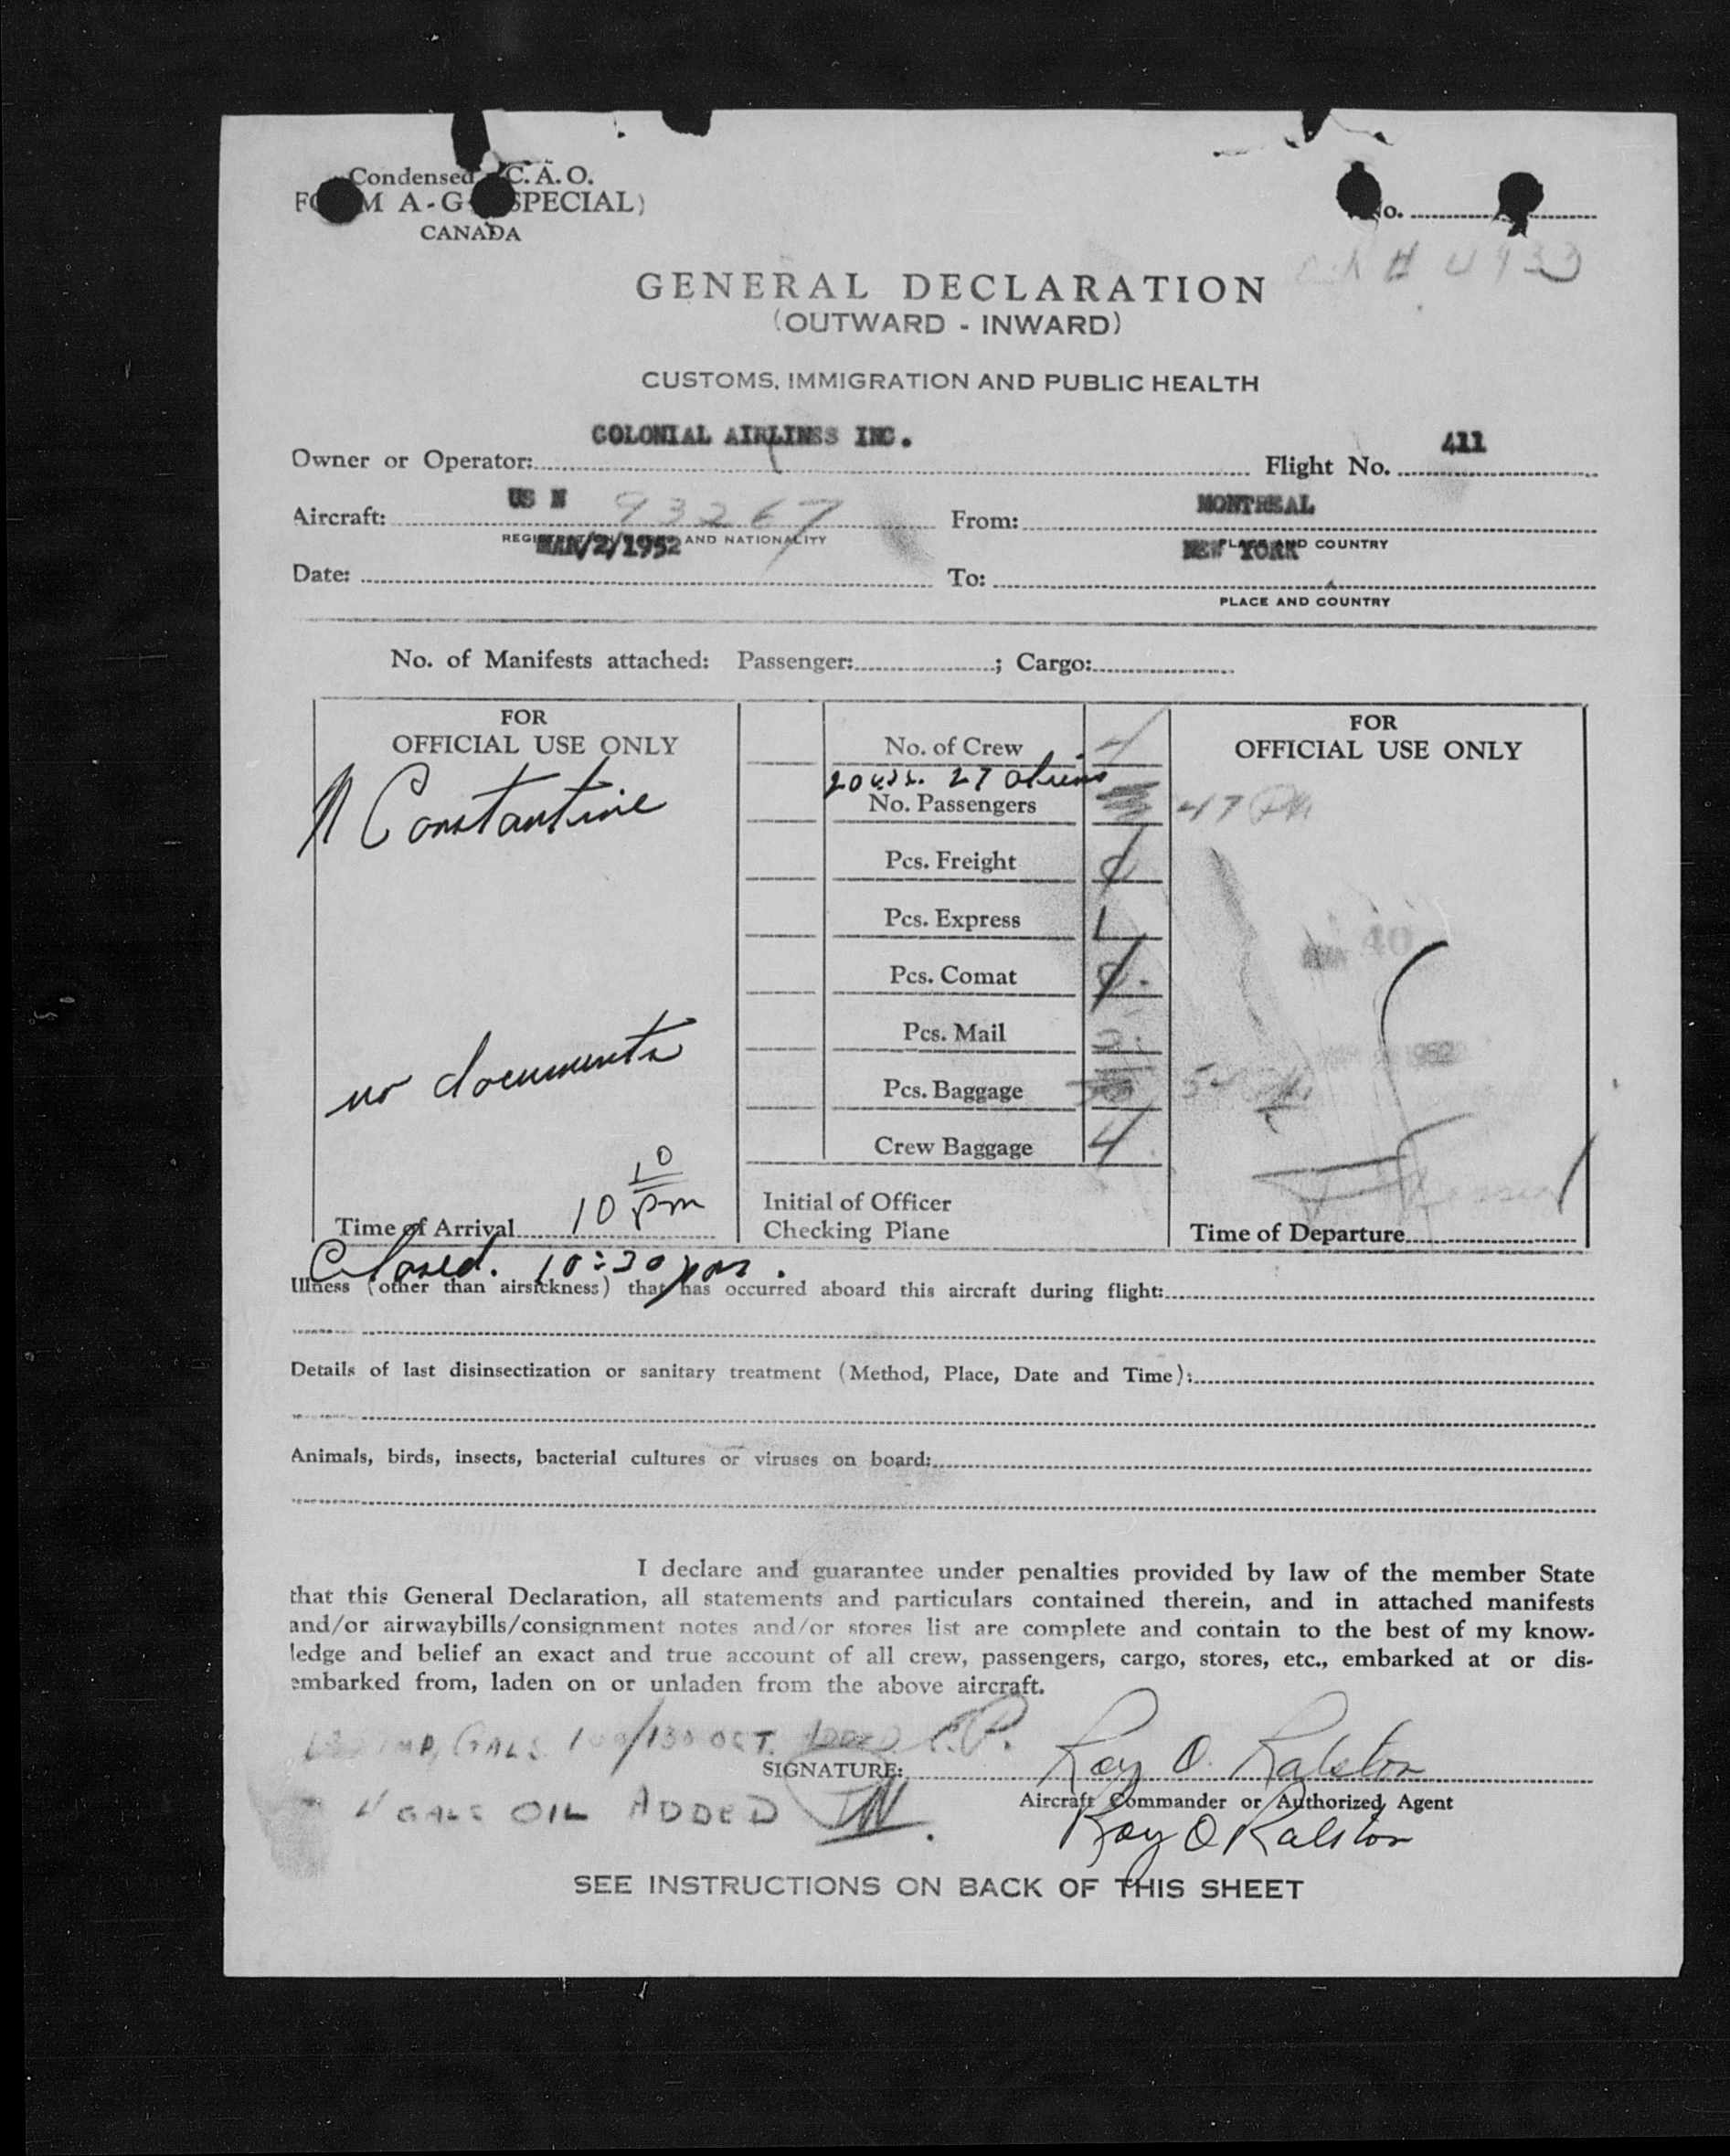 Condensed C.A.O.
FORM A-G (SPECIAL)
CANADA
No.
GENERAL DECLARATION
(OUTWARD - INWARD)
CUSTOMS, IMMIGRATION AND PUBLIC HEALTH
Owner or Operator: COLONIAL AIRLINES INC. Flight No. 411
Aircraft: US N 93267 From: MONTREAL
AND NATIONALITY PLACE AND COUNTRY
Date: MAR/2/1952 To: NEW YORK
PLACE AND COUNTRY
No. of Manifests attached: Passenger: ; Cargo:
FOR
OFFICIAL USE ONLY
Constantine
no documents
10
Time of Arrival 10 pm
Closed. 10:30 pm.
No. of Crew 4
20 27 aliens
No. Passengers
Pcs. Freight
Pcs. Express 1
Pcs. Comat
Pcs. Mail 2
Pcs. Baggage
Crew Baggage 4
Initial of Officer
Checking Plane
FOR
OFFICIAL USE ONLY
47
Time of Departure
Illness (other than airsickness) that has occurred aboard this aircraft during flight:
Details of last disinsectization or sanitary treatment (Method, Place, Date and Time):
Animals, birds, insects, bacterial cultures or viruses on board:
I declare and guarantee under penalties provided by law of the member State
that this General Declaration, all statements and particulars contained therein, and in attached manifests
and/or airwaybills/consignment notes and/or stores list are complete and contain to the best of my know-
ledge and belief an exact and true account of all crew, passengers, cargo, stores, etc., embarked at or dis-
embarked from, laden on or unladen from the above aircraft.
IMP. GALS 100/130 OCT.
SIGNATURE: Roy O. Ralston
Aircraft Commander or Authorized Agent
4 GALS OIL ADDED
Roy O Ralston
SEE INSTRUCTIONS ON BACK OF THIS SHEET